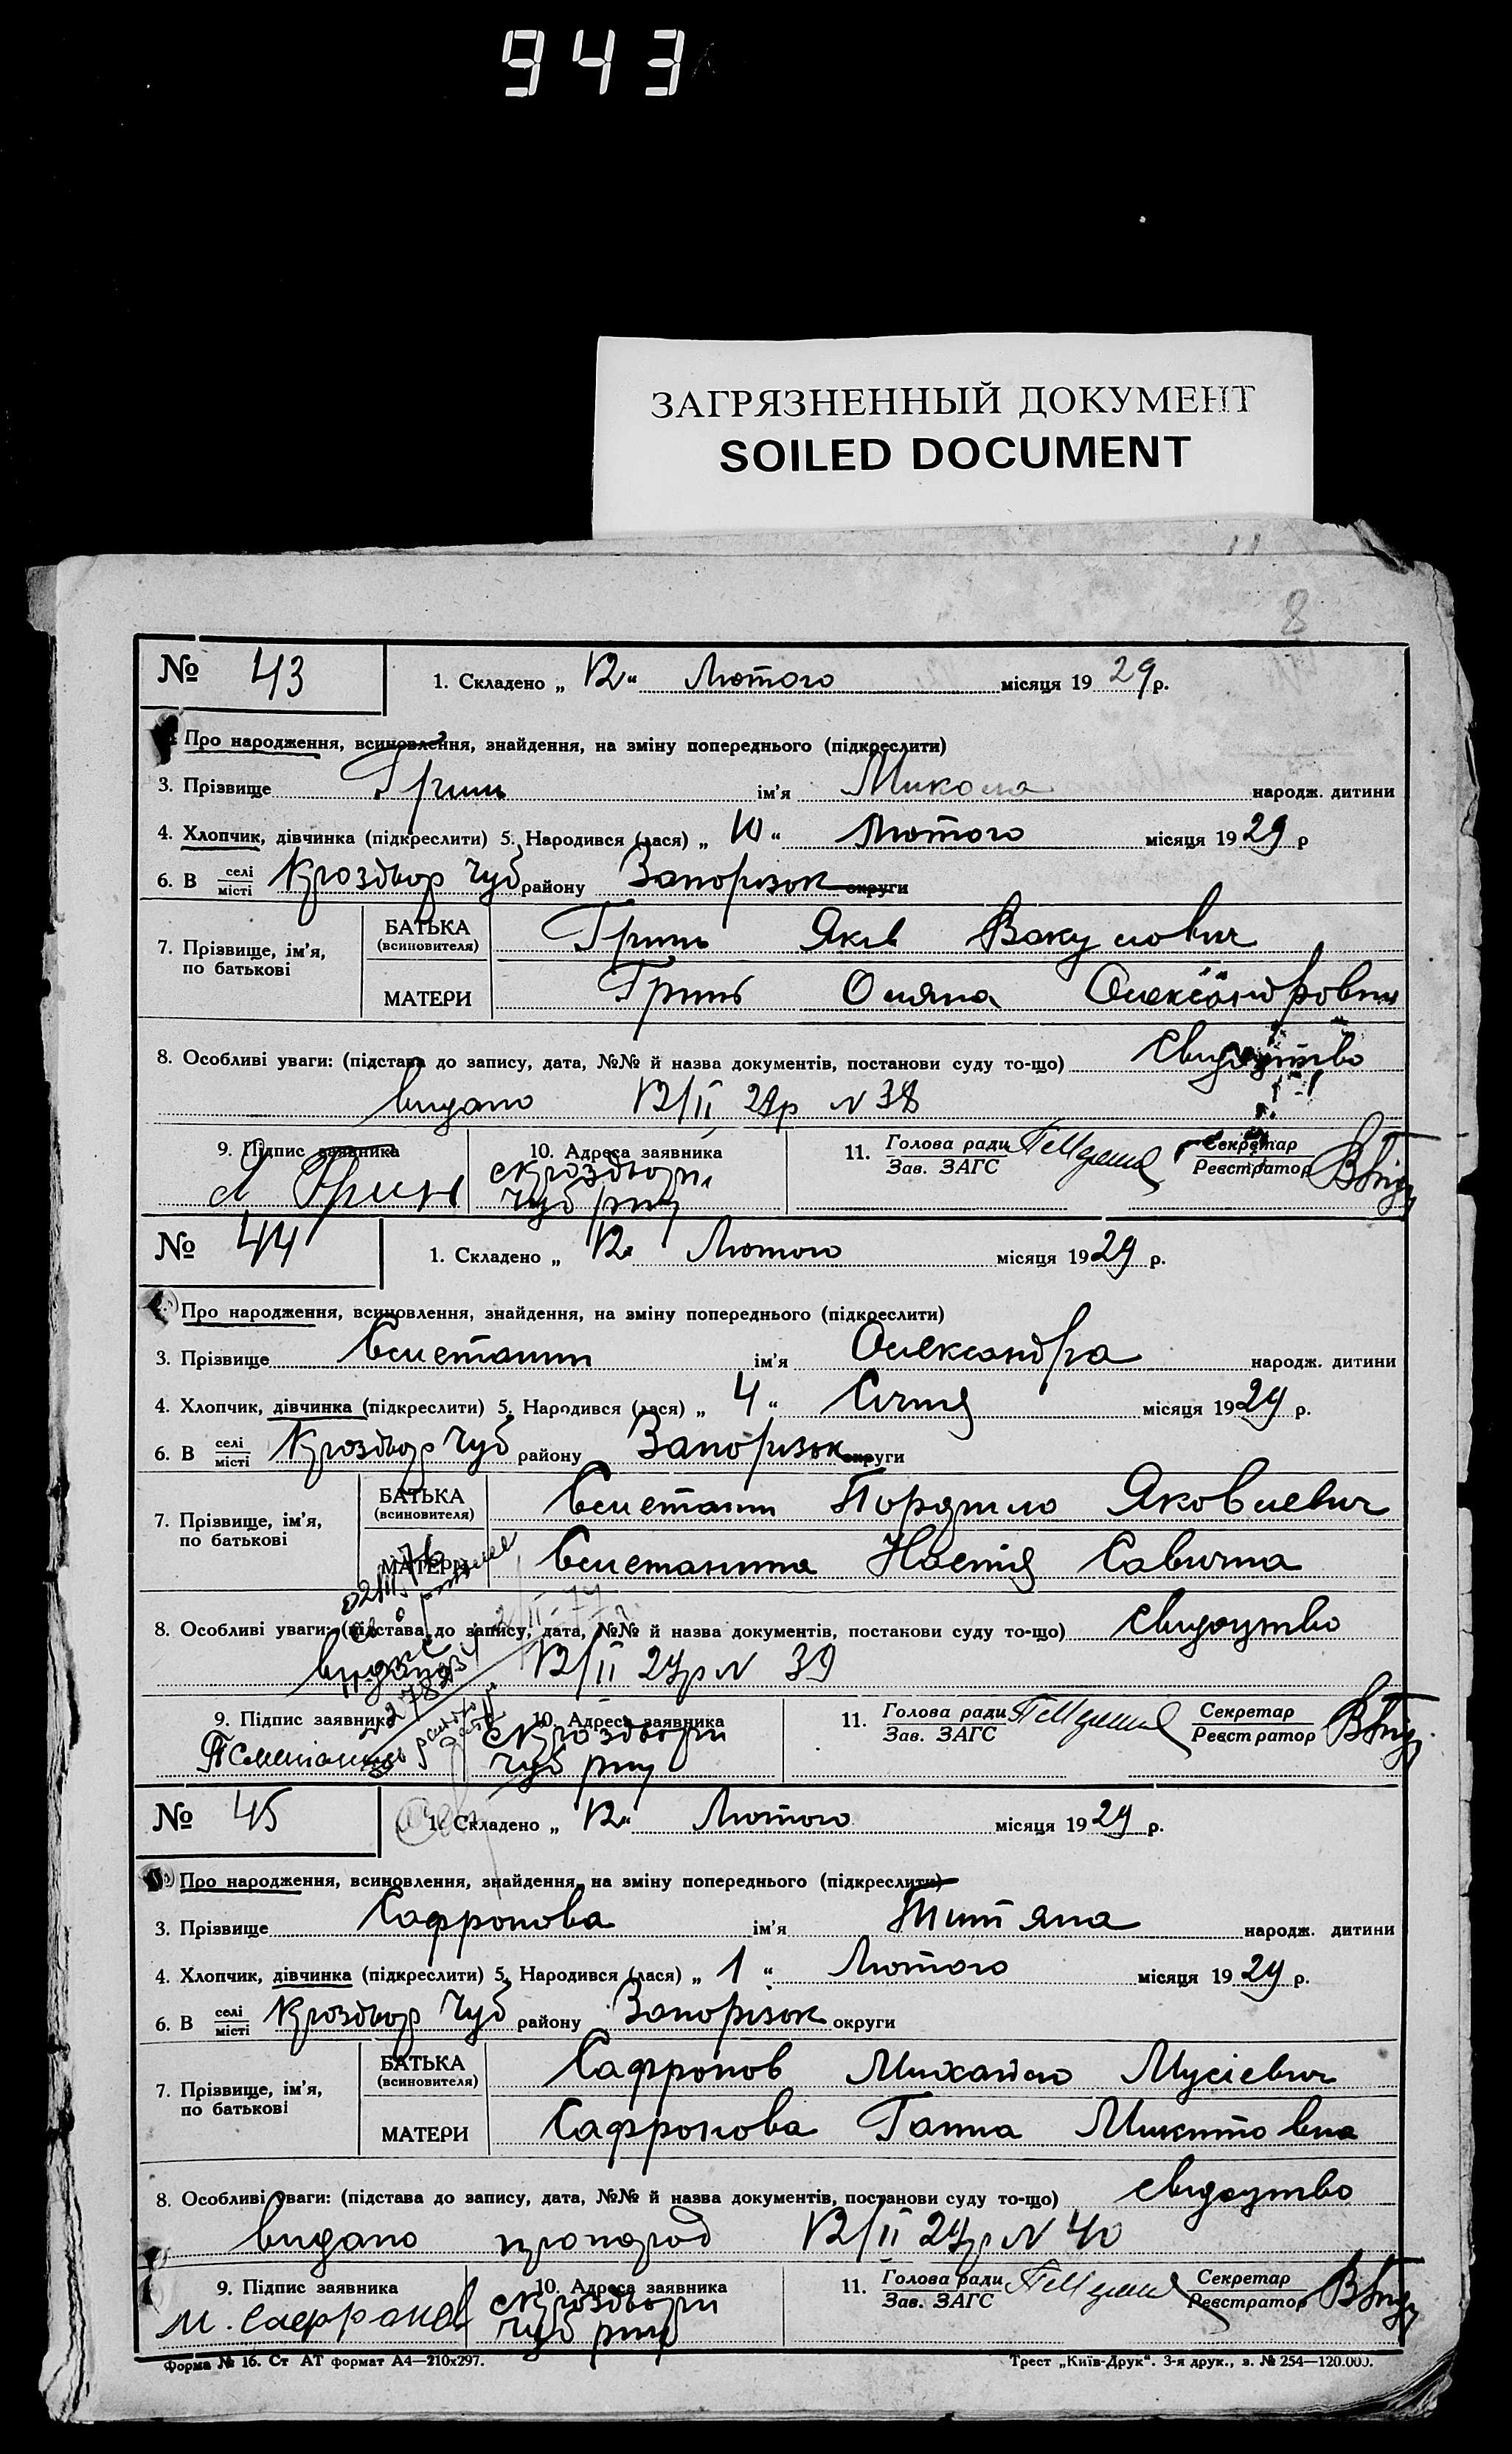 943
ЗАГРЯЗНЕННЫЙ ДОКУМЕНТ
SOILED DOCUMENT
8
№ 43 1. Складено „ 12 “ Лютого місяця 19 29 р.
Про народження, всиновлення, знайдення, на зміну попереднього (підкреслити)
3. Прізвище Гринь ім'я Микола народж. дитини
4. Хлопчик, дівчинка (підкреслити) 5. Народився (лася) „ 10 “ Лютого місяця 19 29 р
6. В селі місті Чуб району Запорізок округи
7. Прізвище, ім'я, по батькові
БАТЬКА (всиновителя) Гринь Яків Вакулович
МАТЕРИ Гринь Оляна Олександровна
8. Особливі уваги: (підстава до запису, дата, №№ й назва документів, постанови суду то-що) свидоцтво
видано 12/II 29р N 38
9. Підпис заявника 10. Адреса заявника 11. Голова ради Зав. ЗАГС Секретар Реєстратор
Я Гринь
Чуб рну
№ 44 1. Складено „ 12 “ Лютого місяця 19 29 р.
Про народження, всиновлення, знайдення, на зміну попереднього (підкреслити)
3. Прізвище Сметанин ім'я Олександра народж. дитини
4. Хлопчик, дівчинка (підкреслити) 5. Народився (лася) „ 4 “ Січня місяця 19 29 р.
6. В селі місті Чуб району Запорізок округи
7. Прізвище, ім'я, по батькові
БАТЬКА (всиновителя) Сметанин Яковлевич
МАТЕРИ Сметанина Настя Савична
8. Особливі уваги: (підстава до запису, дата, №№ й назва документів, постанови суду то-що) свидоцтво
видано 12/II 29р N 39
9. Підпис заявника 10. Адреса заявника 11. Голова ради Зав. ЗАГС Секретар Реєстратор
Чуб рну
№ 45 1. Складено „ 12 “ Лютого місяця 19 29 р.
Про народження, всиновлення, знайдення, на зміну попереднього (підкреслити)
3. Прізвище Сафронова ім'я Титяна народж. дитини
4. Хлопчик, дівчинка (підкреслити) 5. Народився (лася) „ 1 “ Лютого місяця 19 29 р.
6. В селі місті Чуб району Запорізок округи
7. Прізвище, ім'я, по батькові
БАТЬКА (всиновителя) Сафронов Михайло Мусієвич
МАТЕРИ Сафронова Ганна Микитовна
8. Особливі уваги: (підстава до запису, дата, №№ й назва документів, постанови суду то-що) свидоцтво
видано пронарод 12/II 29р N 40
9. Підпис заявника 10. Адреса заявника 11. Голова ради Зав. ЗАГС Секретар Реєстратор
М. Сафронов
Чуб рну
Форма № 16. Ст АТ формат А4—210х297. Трест „Київ-Друк“. 3-я друк., з. № 254—120.000.